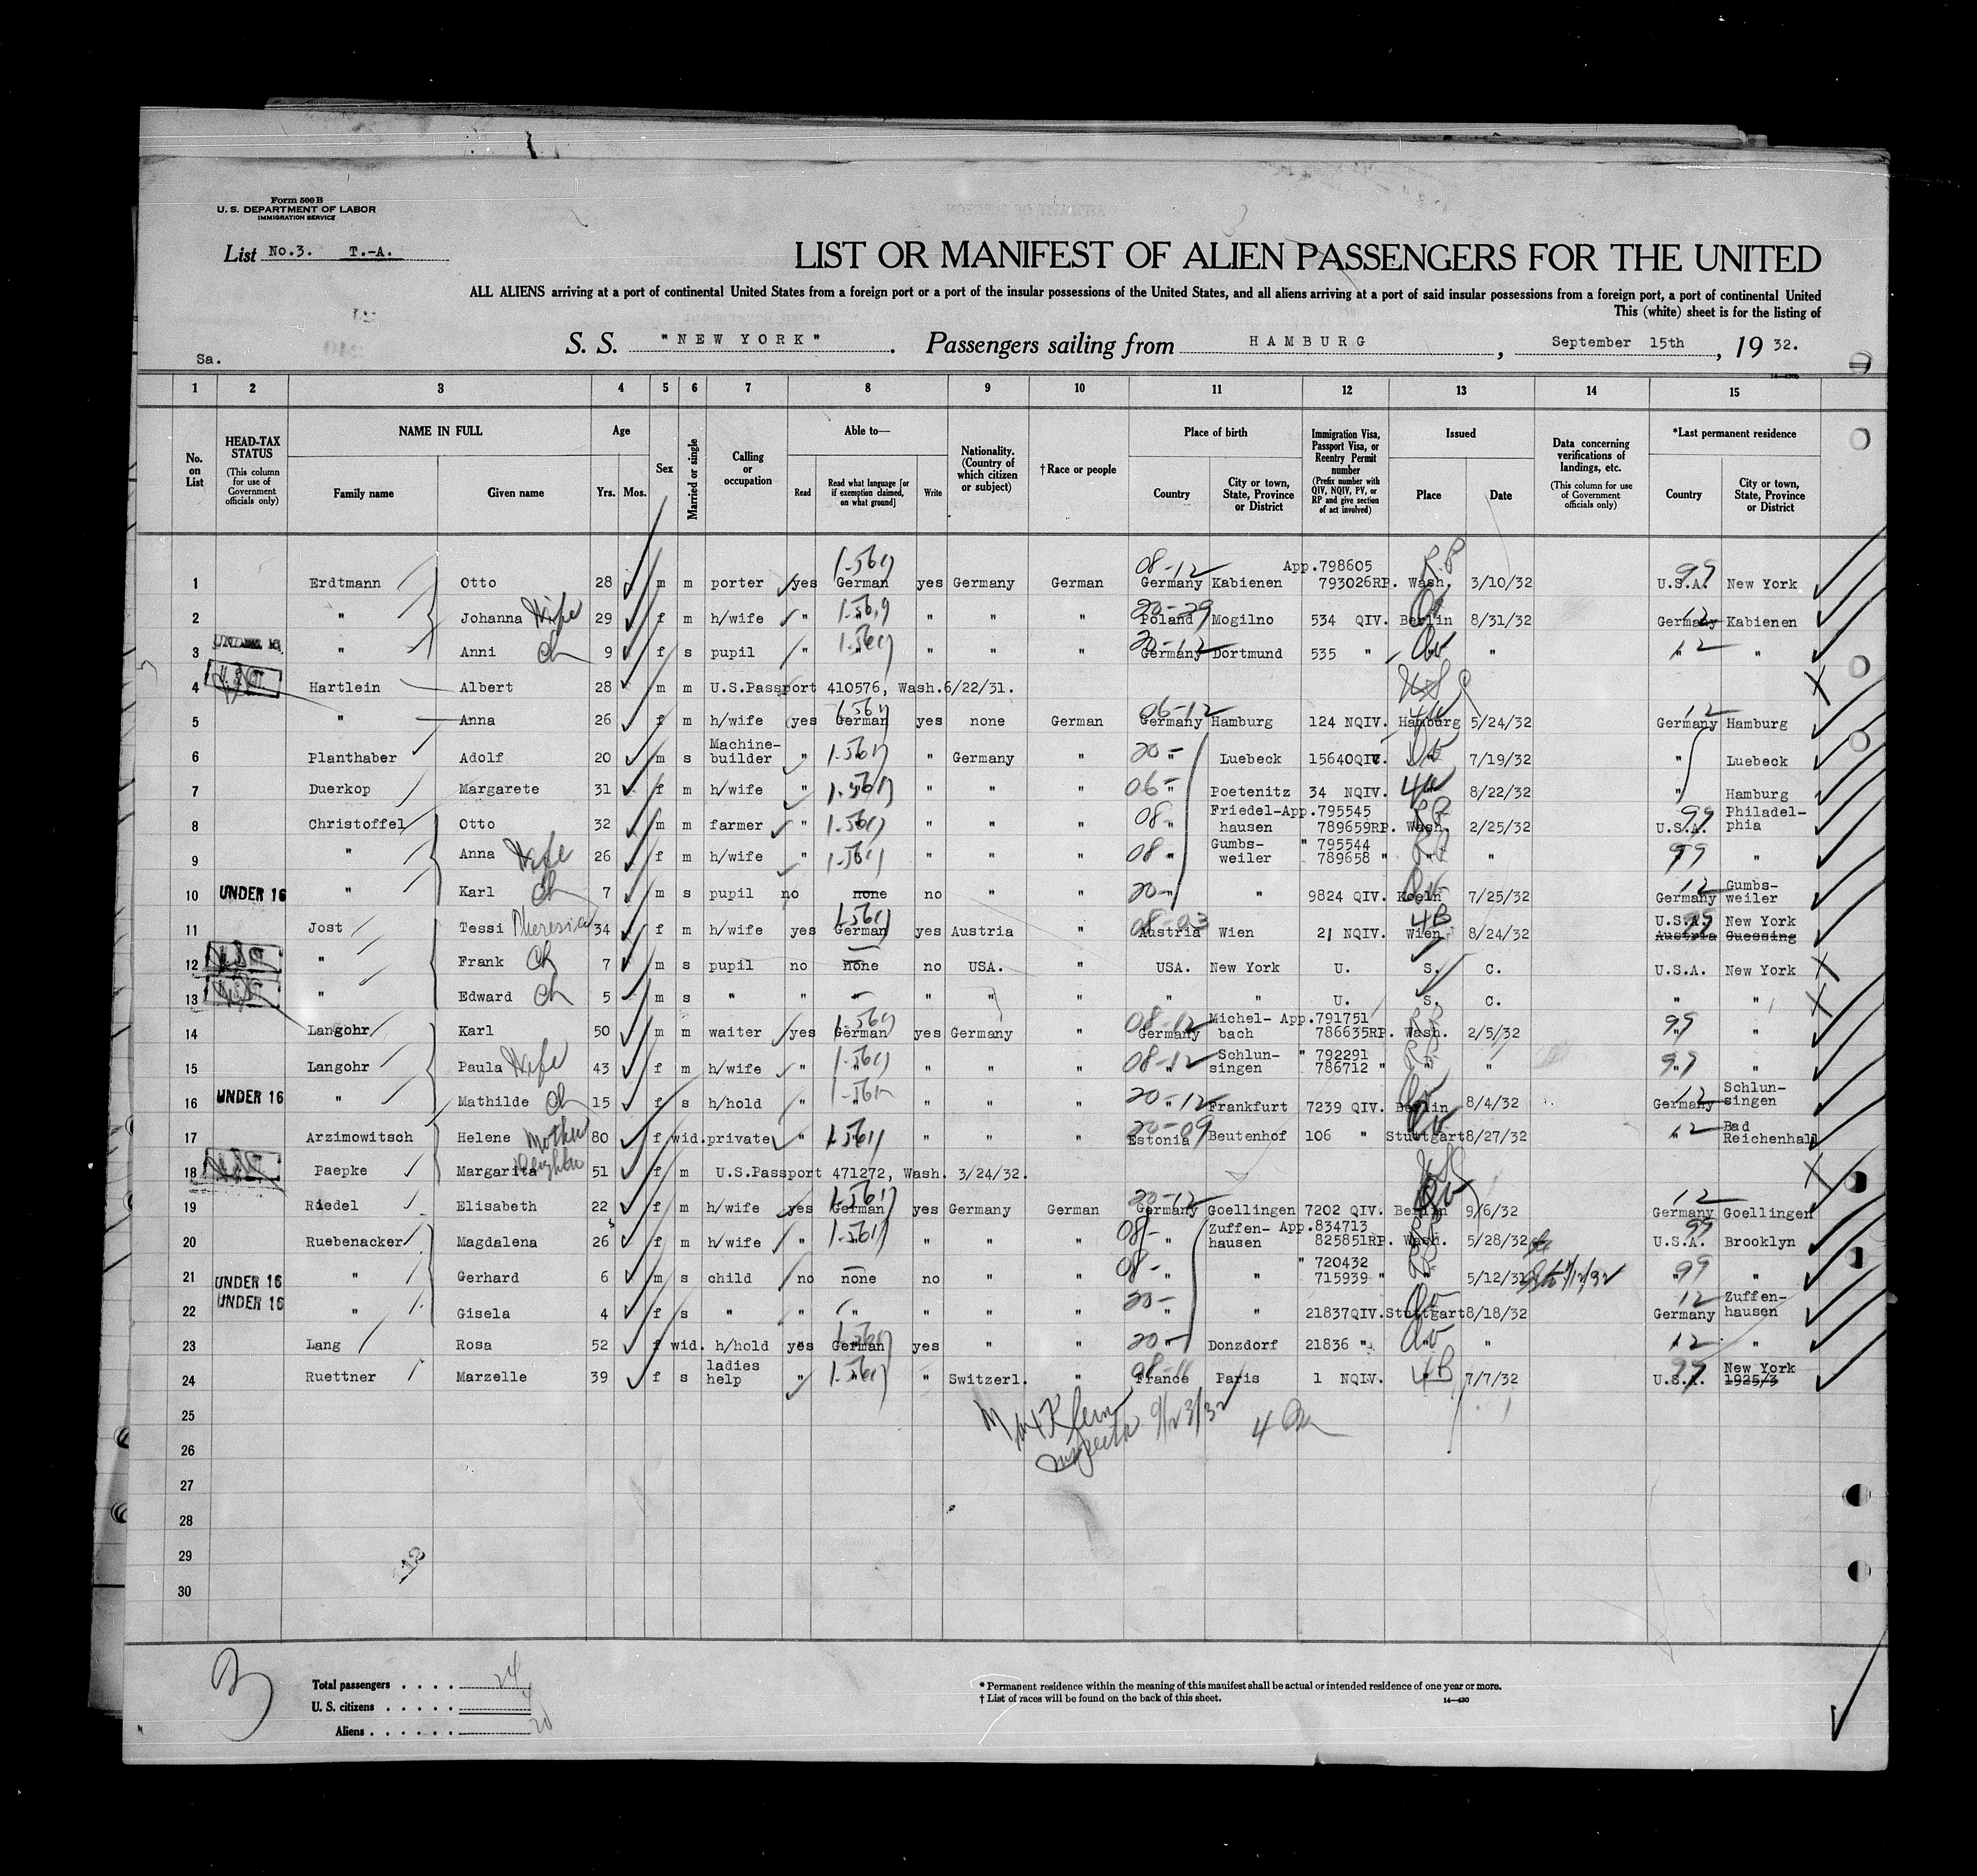 Form 500 B
U. S. DEPARTMENT OF LABOR
IMMIGRATION SERVICE
List No.3. T.-A.
LIST OR MANIFEST OF ALIEN PASSENGERS FOR THE UNITED
ALL ALIENS arriving at a port of continental United States from a foreign port or a port of the insular possessions of the United States, and all aliens arriving at a port of said insular possessions from a foreign port, a port of continental United
This (white) sheet is for the listing of
Sa.
S. S. "NEW YORK". Passengers sailing from HAMBURG, September 15th, 19 32.
1 2 3 4 5 6 7 8 9 10 11 12 13 14 15
No. on List
HEAD-TAX STATUS (This column for use of Government officials only)
NAME IN FULL Family name Given name
Age Yrs. Mos.
Sex
Married or single
Calling or occupation
Able to— Read Read what language [or if exemption claimed, on what ground] Write
Nationality. (Country of which citizen or subject)
† Race or people
Place of birth Country City or town, State, Province or District
Immigration Visa, Passport Visa, or Reentry Permit number (Prefix number with QIV, NQIV, PV, or RP and give section of act involved)
Issued Place Date
Data concerning verifications of landings, etc. (This column for use of Government officials only)
*Last permanent residence Country City or town, State, Province or District
1 Erdtmann Otto 28 m m porter yes German yes Germany German 08-12 Germany Kabienen App.798605 793026RP. Wash. 3/10/32 99 U.S.A. New York
2 " Johanna Wife 29 f m h/wife " " " " " 20-29 Poland Mogilno 534 QIV. Berlin 8/31/32 12 Germany Kabienen
UNDER 16
3 " Anni Ch 9 f s pupil " " " " " 20-12 Germany Dortmund 535 " " " 12 " "
4 Hartlein Albert 28 m m U.S.Passport 410576, Wash.6/22/31.
5 " Anna 26 f m h/wife yes German yes none German 06-12 Germany Hamburg 124 NQIV. Hamburg 5/24/32 12 Germany Hamburg
6 Planthaber Adolf 20 m s Machine-builder " " Germany " 20- " Luebeck 15640QIV. " 7/19/32 " Luebeck
7 Duerkop Margarete 31 f m h/wife " " " " " 06- " Poetenitz 34 NQIV. " 8/22/32 " Hamburg
8 Christoffel Otto 32 m m farmer " " " " " 08- " Friedel-hausen App.795545 789659RP. Wash. 2/25/32 99 U.S.A. Philadel-phia
9 " Anna Wife 26 f m h/wife " " " " " 08 " Gumbs-weiler " 795544 789658 " " " 99 " "
10 UNDER 16 " Karl Ch 7 m s pupil no none no " " 20- " " 9824 QIV. Koeln 7/25/32 12 Germany Gumbs-weiler
11 Jost Tessi Theresia 34 f m h/wife yes German yes Austria " 08-03 Austria Wien 21 NQIV. Wien. 8/24/32 99 U.S.A. New York Austria Guessing
12 " Frank Ch 7 m s pupil no none no USA. " USA. New York U. S. C. U.S.A. New York
13 " Edward Ch 5 m s " " - " " " " " U. S. C. " "
14 Langohr Karl 50 m m waiter yes German yes Germany " 08-12 Germany Michel-bach App.791751 786635RP. Wash. 2/5/32 99 " "
15 Langohr Paula Wife 43 f m h/wife " " " " " 08-12 " Schlun-singen " 792291 786712 " " " 99 " "
16 UNDER 16 " Mathilde Ch 15 f s h/hold " " " " 20-12 " Frankfurt 7239 QIV. Berlin 8/4/32 12 Germany Schlun-singen
17 Arzimowitsch Helene Mother 80 f wid. private " " " " 20-09 Estonia Beutenhof 106 " Stuttgart 8/27/32 12 " Bad Reichenhall
18 Paepke Margarita Daughter 51 f m U.S.Passport 471272, Wash. 3/24/32.
19 Riedel Elisabeth 22 f m h/wife yes German yes Germany German 20-12 Germany Goellingen 7202 QIV. Berlin 9/6/32 12 Germany Goellingen
20 Ruebenacker Magdalena 26 f m h/wife " " " " " 08- " Zuffen-hausen App.834713 825851RP. Wash. 5/28/32 99 U.S.A. Brooklyn
21 UNDER 16 " Gerhard 6 m s child no none no " " 08- " " " 720432 715939 " " 5/12/31 99 " "
22 UNDER 16 " Gisela 4 f s " " " " " " 20- " " 21837QIV. Stuttgart 8/18/32 12 Germany Zuffen-hausen
23 Lang Rosa 52 f wid. h/hold yes German yes " " 20- " Donzdorf 21836 " " " 12 " "
24 Ruettner Marzelle 39 f s ladies help " " " Switzerl. " 08-11 France Paris 1 NQIV. " 7/7/32 99 U.S.A. New York 1925/3
25
26
27
28
29
30
Inspector 9/23/32
3
Total passengers . . . . 24
U. S. citizens . . . . . 4
Aliens . . . . . . 20
* Permanent residence within the meaning of this manifest shall be actual or intended residence of one year or more.
† List of races will be found on the back of this sheet.
14—430